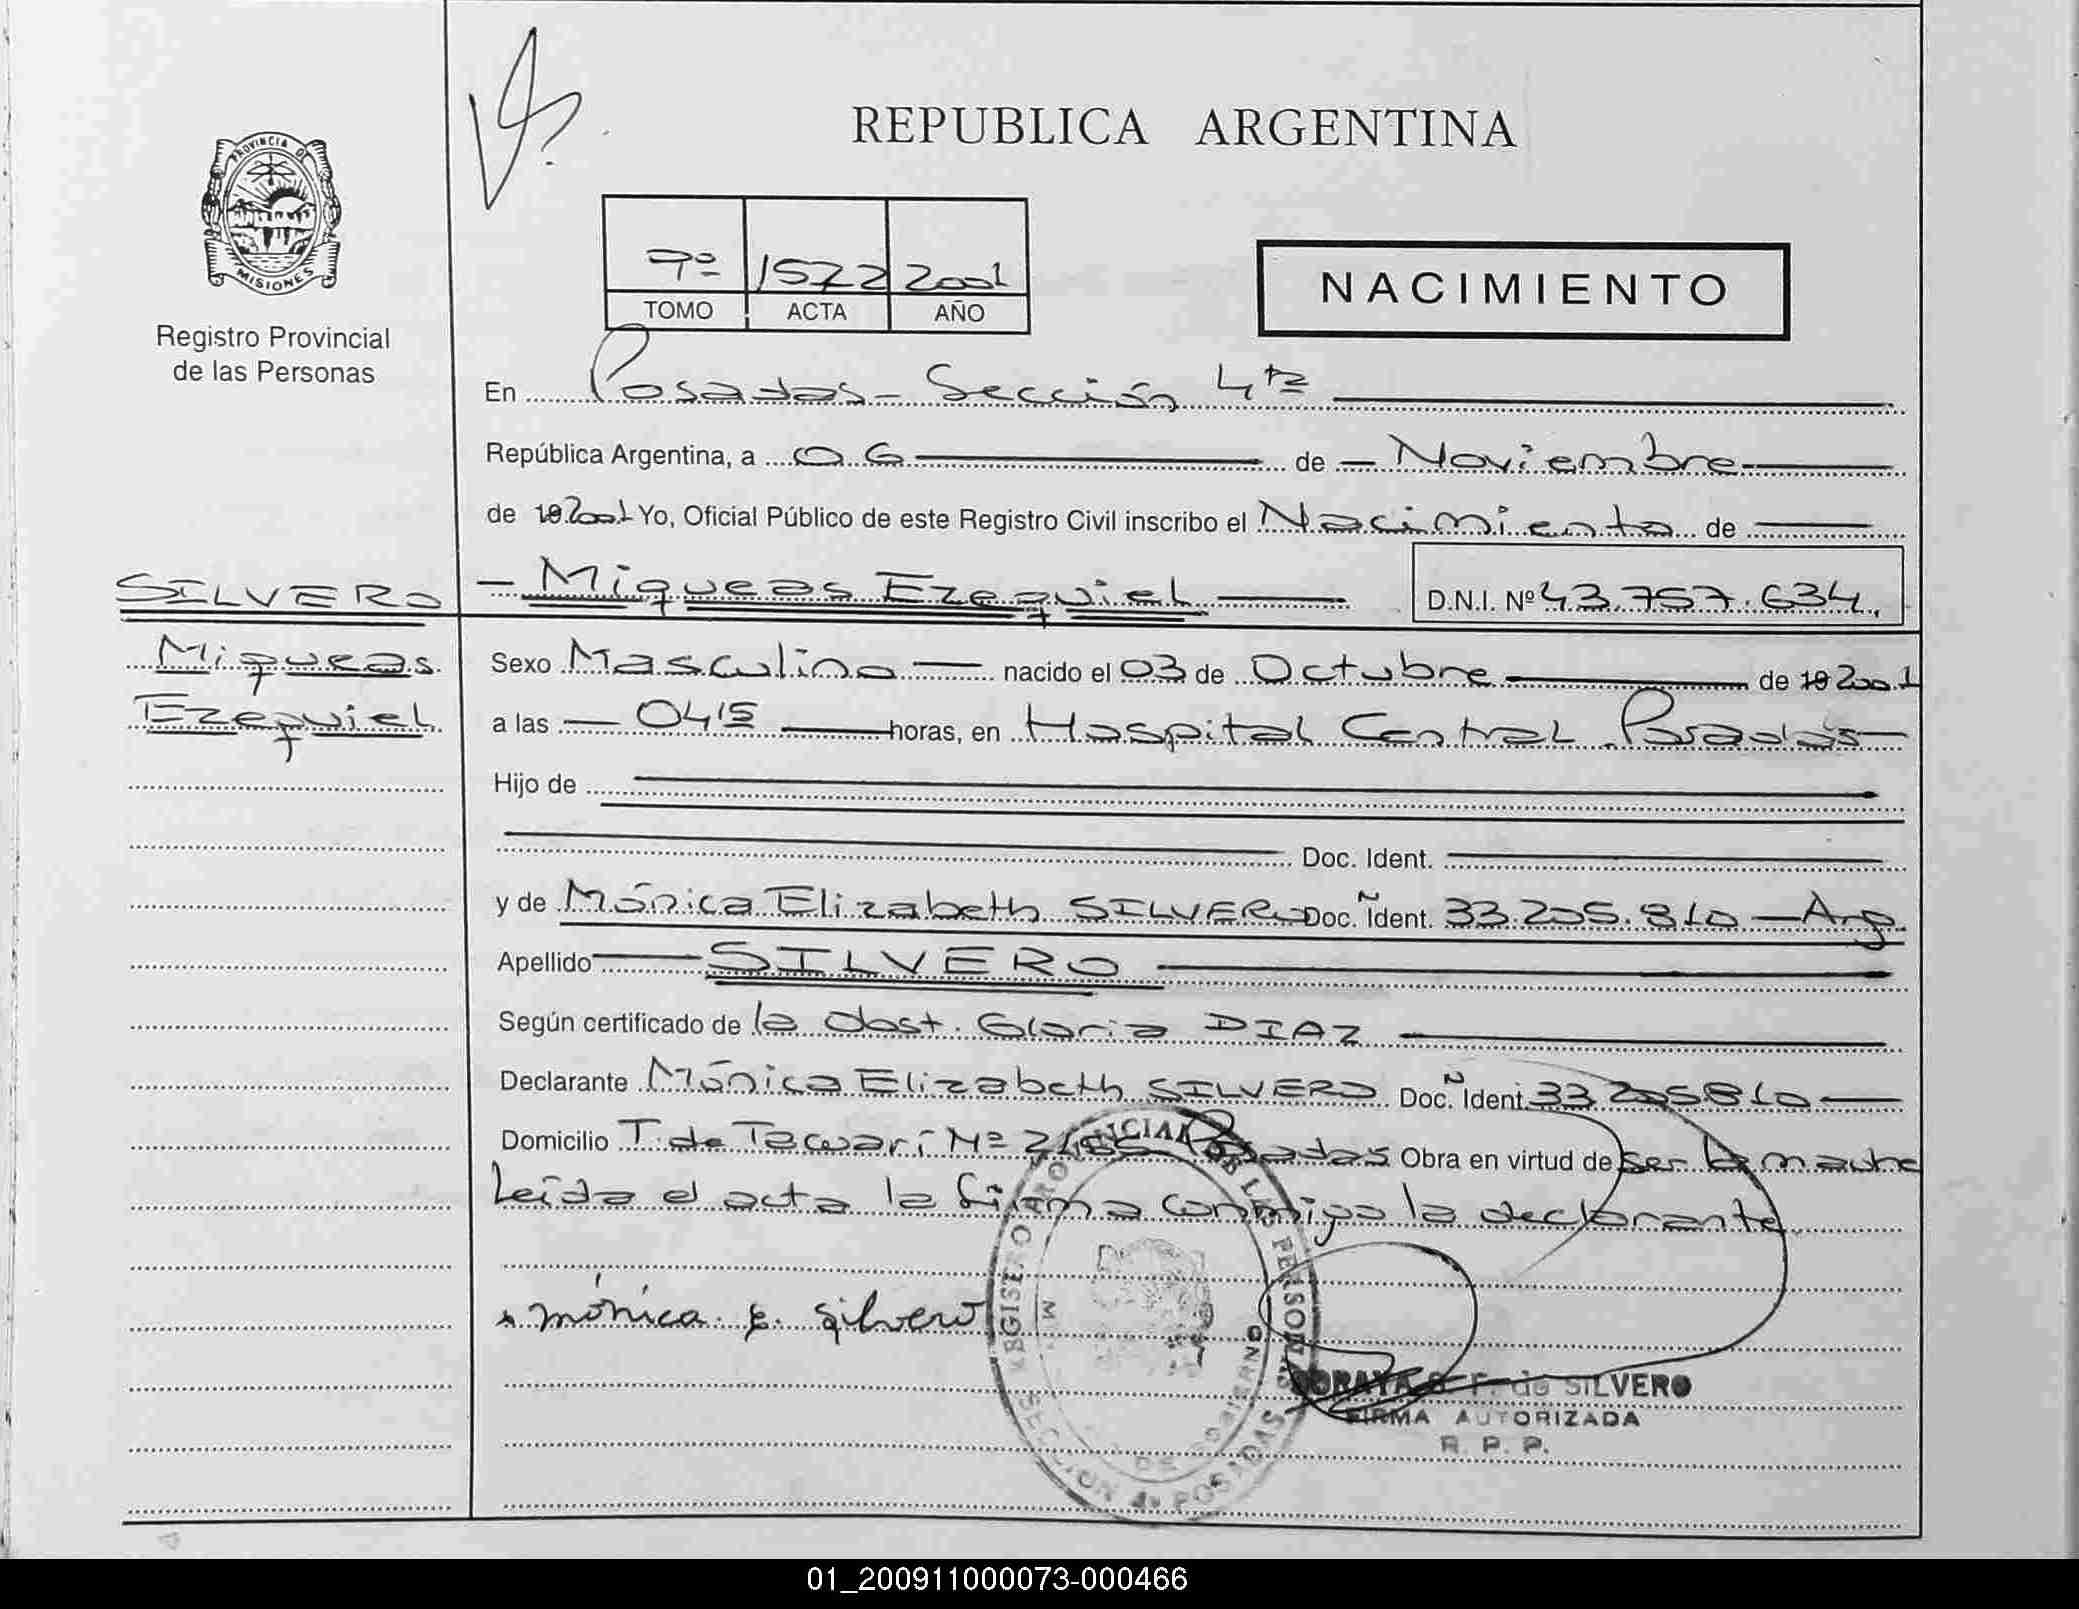 REPUBLICA ARGENTINA
PROVINCIA DE
MISIONES
Registro Provincial
de las Personas
7º 1572 2001
TOMO ACTA AÑO
NACIMIENTO
En Posadas - Sección 4ta
República Argentina, a 06 de - Noviembre
de 19 2001 Yo, Oficial Público de este Registro Civil inscribo el Nacimiento de
SILVERO
- Miqueas Ezequiel D.N.I. Nº 43.757.634.
Miqueas
Ezequiel
Sexo Masculino nacido el 03 de Octubre de 19 2001
a las 04 15 horas, en Hospital Central Posadas
Hijo de
Doc. Ident.
y de Mónica Elizabeth SILVERO Doc. Ident. 33.205.810 - Arg
Apellido SILVERO
Según certificado de la Obst. Gloria DIAZ
Declarante Mónica Elizabeth SILVERO Doc. Ident. 33 205 810
Domicilio T. de Tacuarí Nº Posadas Obra en virtud de ser la madre
Leída el acta la firma conmigo la declarante
mónica E. Silvero
REGISTRO DE LAS PERSONAS
SECCION 4ª POSADAS
DE GOBIERNO
SORAYA F. de SILVERO
FIRMA AUTORIZADA
R. P. P.
01_200911000073-000466